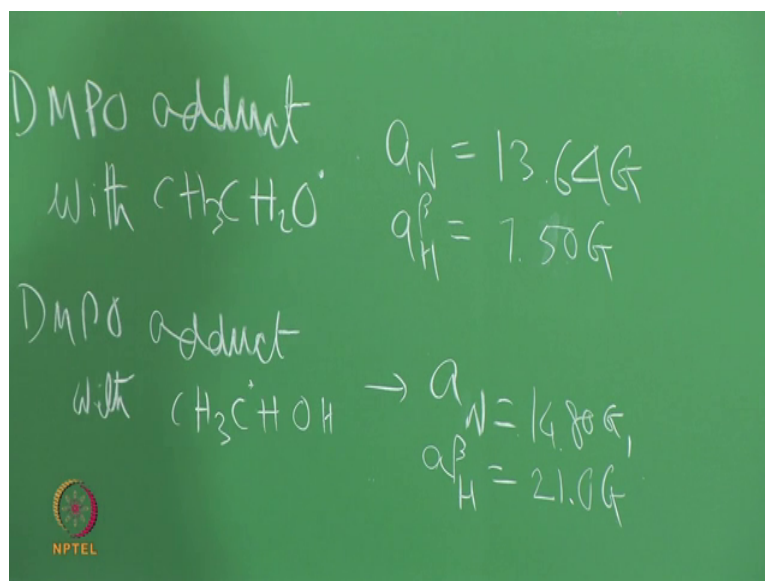 DMPO adduct
with CH₃CH₂O˙
a_N = 13.64G
a^β_H = 7.50G
DMPO adduct
with CH₃ĊHOH → a_N = 14.80G,
a^β_H = 21.0G
NPTEL